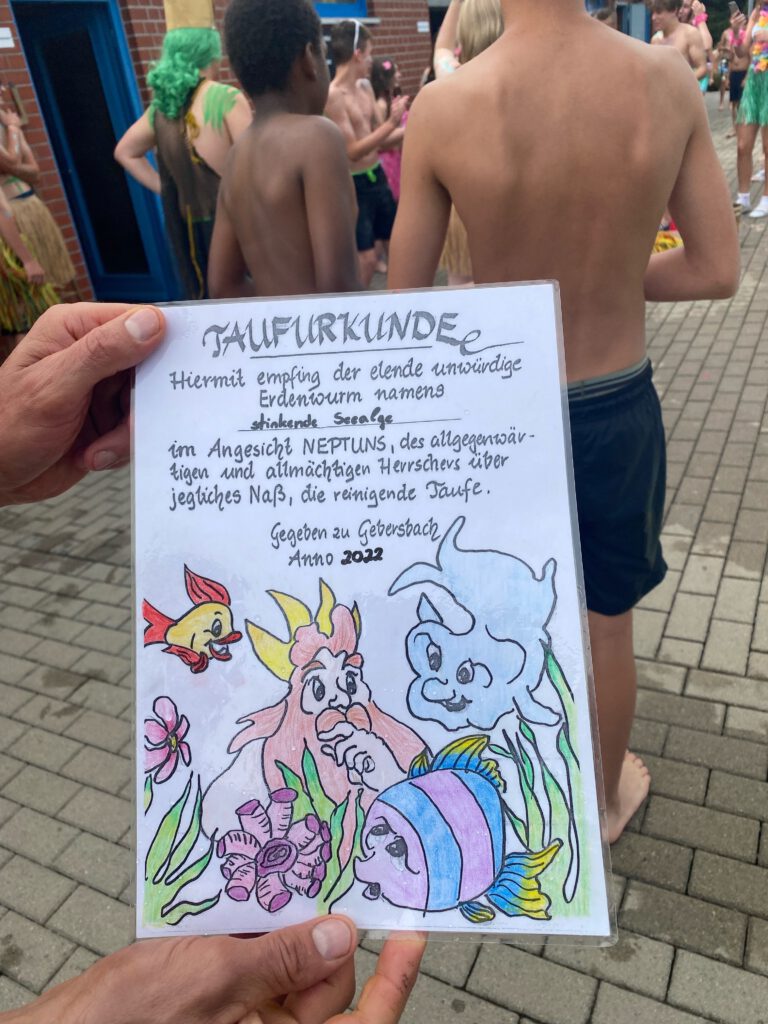 TAUFURKUNDE
Hiermit empfing der elende unwürdige
Erdenwurm namens
stinkende Seealge
im Angesicht NEPTUNS, des allgegenwär-
tigen und allmächtigen Herrschers über
jegliches Naß, die reinigende Taufe.
Gegeben zu Gebersbach
Anno 2022